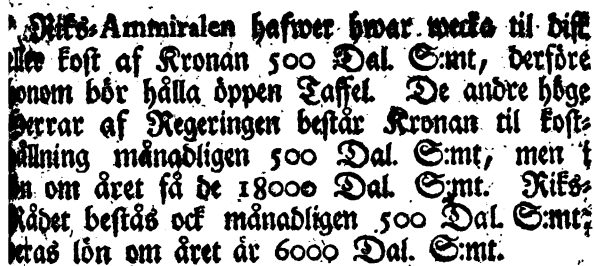 Riks-Ammiralen hafwer hwar wecka til disk
eller kost af Kronan 500 Dal. S:mt, derföre
honom bör hålla öppen Taffel. De andre höge
Herrar af Regeringen består Kronan til kost-
hållning månadligen 500 Dal. S:mt, men i
lön om året få de 18000 Dal. S:mt. Riks-
Rådet bestås ock månadligen 500 Dal. S:mt;
deras lön om året är 6000 Dal. S:mt.